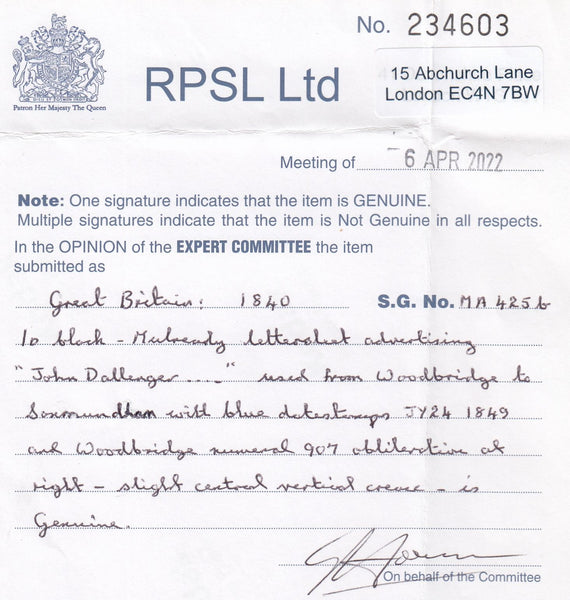 No. 234603
RPSL Ltd
15 Abchurch Lane
London EC4N 7BW
Patron Her Majesty The Queen
Meeting of - 6 APR 2022
Note: One signature indicates that the item is GENUINE.
Multiple signatures indicate that the item is Not Genuine in all respects.
In the OPINION of the EXPERT COMMITTEE the item
submitted as
Great Britain: 1840 S.G. No. MA 425b
1d black - Mulready lettersheet advertising
"John Dallenger ...." used from Woodbridge to
Saxmundham with blue datestamps JY24 1849
and Woodbridge numeral 907 obliterative at
right - slight central vertical crease - is
Genuine.
On behalf of the Committee